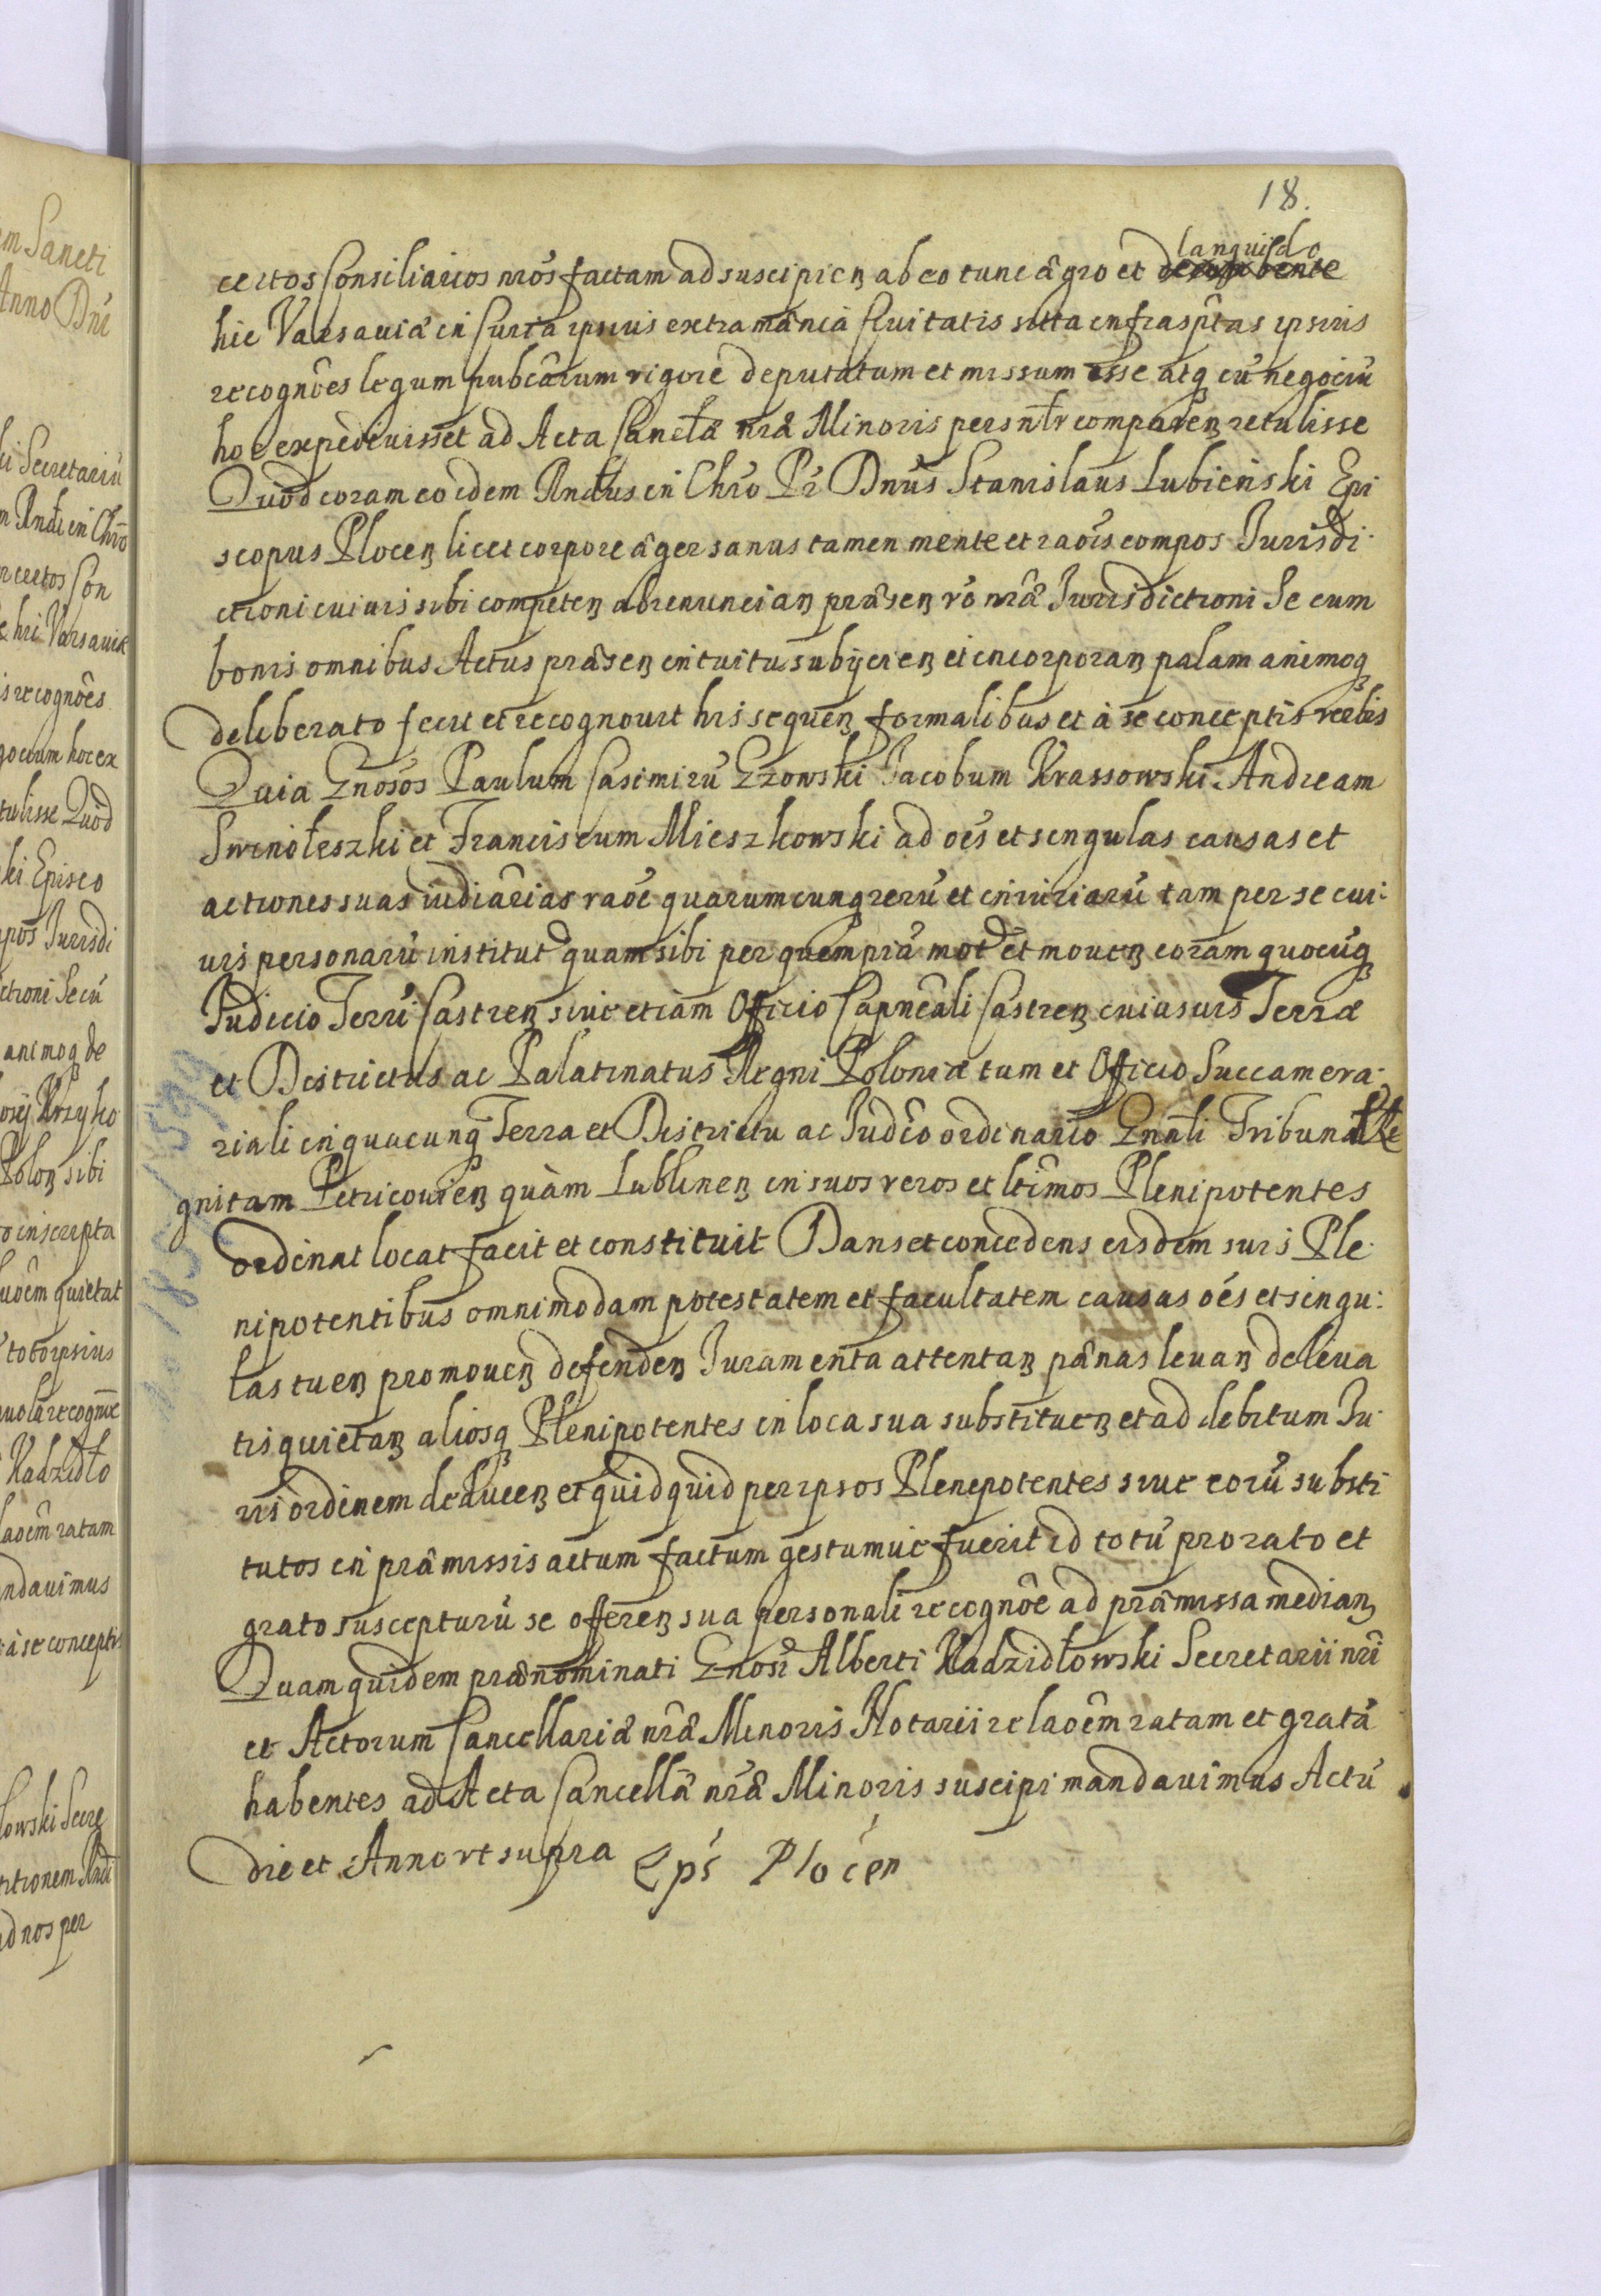 18.
certos Consiliarios nros factam ad suscipien ab eo tunc ægro et languido decumbente
hic Varsaviæ in Curia ipsius extra mænia Civitatis sitta infrasptas ipsius
recognoes legum pubcarum rigore deputatum et missum esse atq cu negociu
hoc expedivisset ad Acta Cancllæ nræ Minoris persnlr comparen retulisse
Quod coram eo idem Rndus in Chro Pr Dnus Stanislaus Lubieński Epi
scopus Plocen licet corpore æger sanus tamen mente et raois compos Jurisdi
ctioni cuiuis sibi competen abrenuncian præsen vo nræ Jurisdictioni Se cum
bonis omnibus Actus præsen intuitu subijcien et incorporan palam animoq
deliberato fecit et recognouit his sequen formalibus et à se conceptis verbis
Quia Gnosos Paulum Casimiru Gzowski Jacobum Krassowski Andream
Swinołeszki et Franciscum Mieszkowski ad oes et singulas causas et
actiones suas iudiarias raoe quarumcunq reru et iniuriaru tam per se cui:
uis personaru institut quam sibi per quempia mot et mouen coram quocuq
Judicio Terri Castren siue etiam Officio Capneali Castren cuiusuis Terræ
et Districtus ac Palatinatus Regni Poloniæ tum et Officio Succamera:
riali in quacunq Terra et Districtu ac Judio ordinario Gnali Tribunał Re
gni tam Petricouien quàm Lublinen in suos veros et ltimos Plenipotentes
ordinat locat facit et constituit Dans et concedens eisdem suis Ple:
nipotentibus omnimodam potestatem et facultatem causas oes et singu:
las tuen promouen defenden Juramenta attentan pænas leuan de leua
tis quietan aliosq Plenipotentes in loca sua substituen et ad debitum Ju:
ris ordinem deducen et quidquid per ipsos Plenipotentes siue eoru substi
tutos in præmissis actum factum gestumue fuerit id totu pro rato et
grato suscepturu se offeren sua personali recognoe ad præmissa median
Quam quidem prænominati Gnosi Alberti Kadzidłowski Secretarii nri
et Actorum Cancellariæ nræ Minoris Notarii relaoem ratam et grata
habentes ad Acta Cancellæ nræ Minoris suscipi mandauimus Actu
die et Anno vt supra Eps Plocen